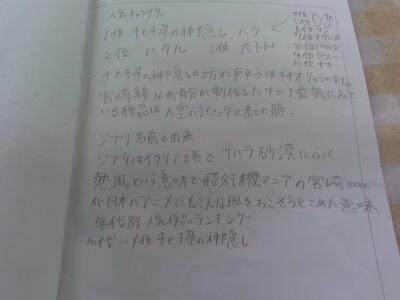 人気キャラクター
1位 千と千尋の神隠し ハク
2位 ハウル 3位 大トトロ
5位
6位
7位
8位
9位
10位 キキ
・千と千尋の神隠しの坊の声やうは神木りゅうのすけ
宮崎駿さんが自分が制作した中で3番気に入って
いる作品は天空のラピュタと紅の豚。
ジブリ名前の由来
ジブリはイタリア語でサハラ砂漠にふく
熱風という意味で飛行機マニアの宮崎さん
が日本のアニメにもこんな風をおこそうとこめた意味
年代別 人気作品ランキング
10代…1位 千と千尋の神隠し